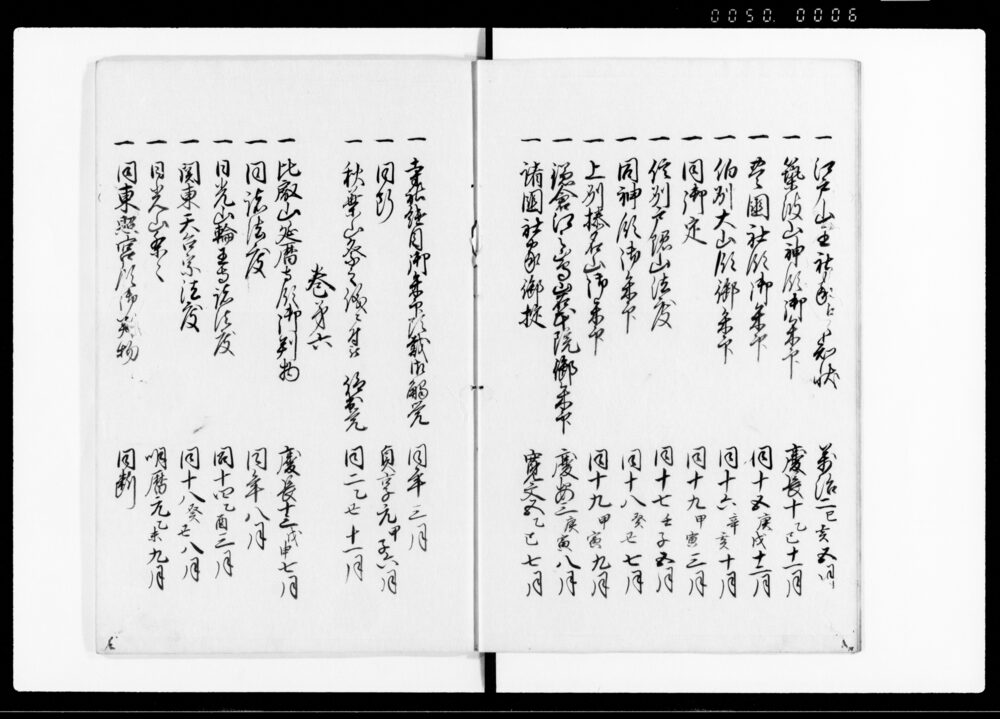 0050. 0006
一 江戸山王社家 状 万治二己亥五月
一 筑波山神領御朱印 慶長十乙巳十一月
一 豊国社領御朱印 同十五庚戌十二月
一 伯州大山領御朱印 同十六辛亥十月
一 同御定 同十九甲寅三月
一 信州戸隠山法度 同十七壬子五月
一 同神領御朱印 同十八癸丑七月
一 上州榛名山御朱印 同十九甲寅九月
一 鎌倉江嶋岩本院御朱印 慶安三庚寅八月
一 諸国社家御掟 寛文五乙巳七月
一 御朱印頂戴御触 同年三月
一 同断 貞享元甲子六月
一 秋葉山祭 同二乙丑十一月
巻第六
一 比叡山延暦寺領御判物 慶長十三戊申七月
一 同諸法度 同年八月
一 日光山輪王寺諸法度 同十四乙酉三月
一 関東天台宗法度 同十八癸丑八月
一 日光山条々 明暦元乙未九月
一 同東照宮領御判物 同断